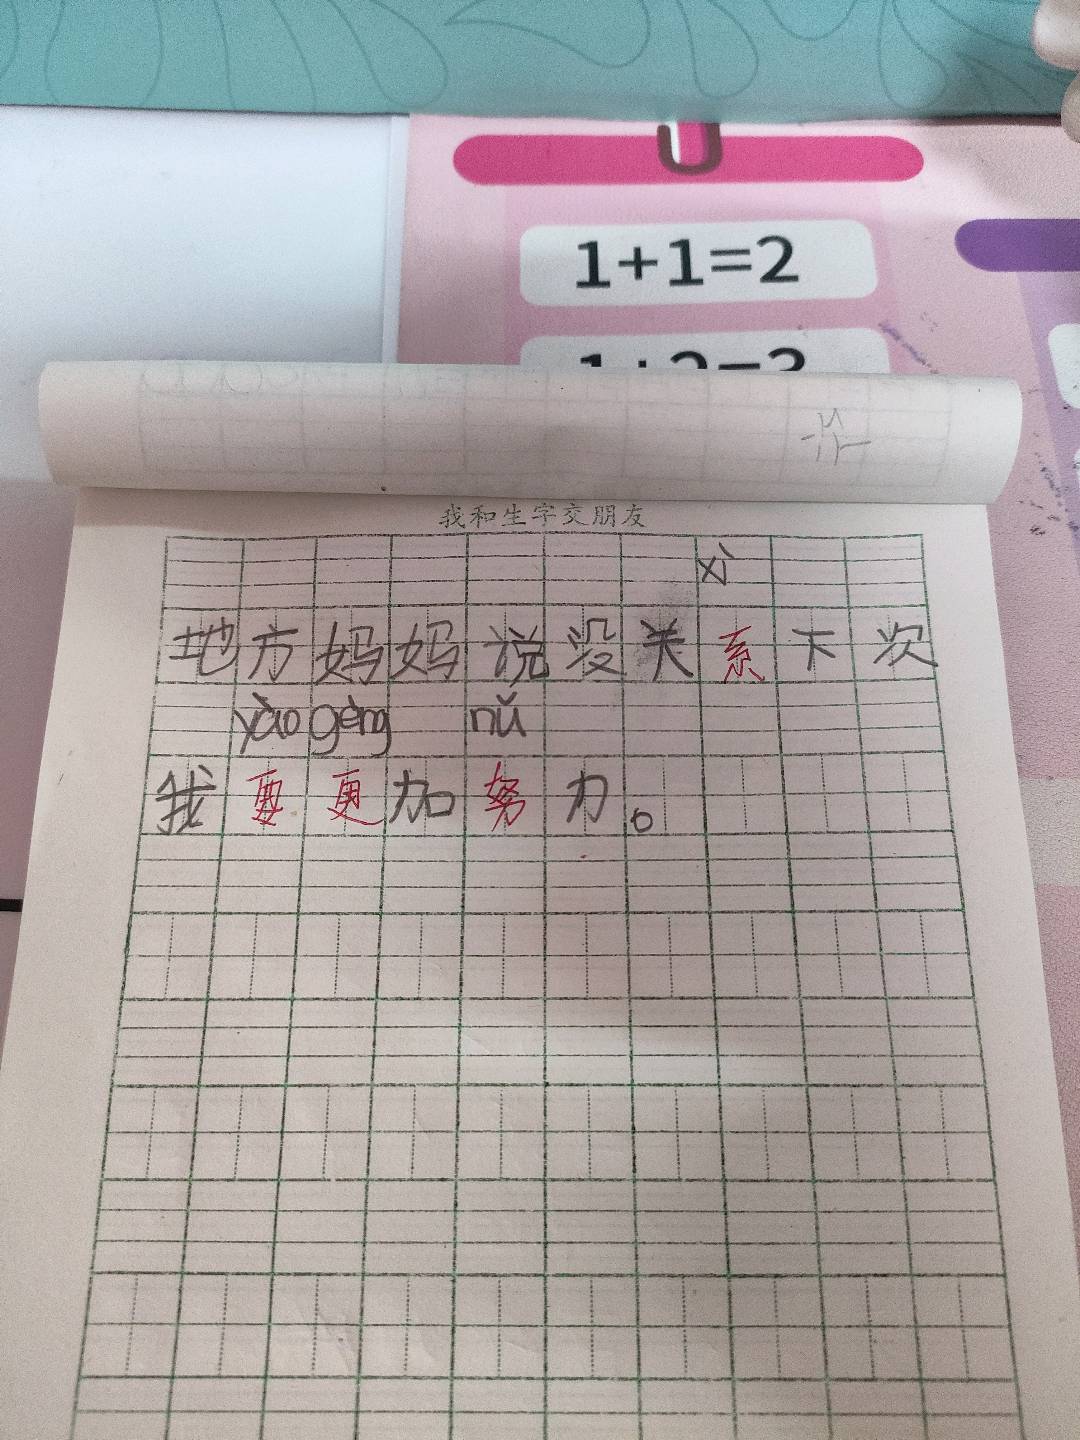 1+1=2
我和生字交朋友
xì
地方妈妈说没关系下次
yào gèng nǔ
我要更加努力。